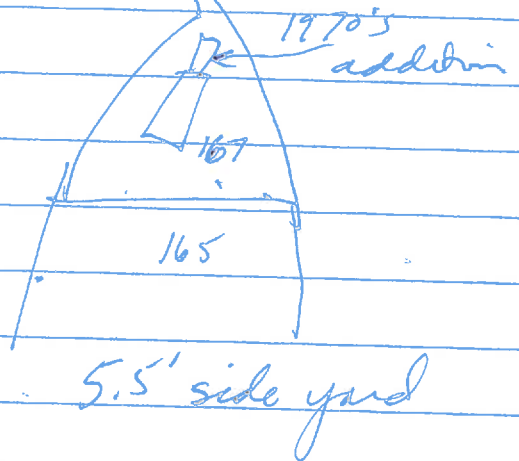 1970's
addition
167
165
5.5' side yard